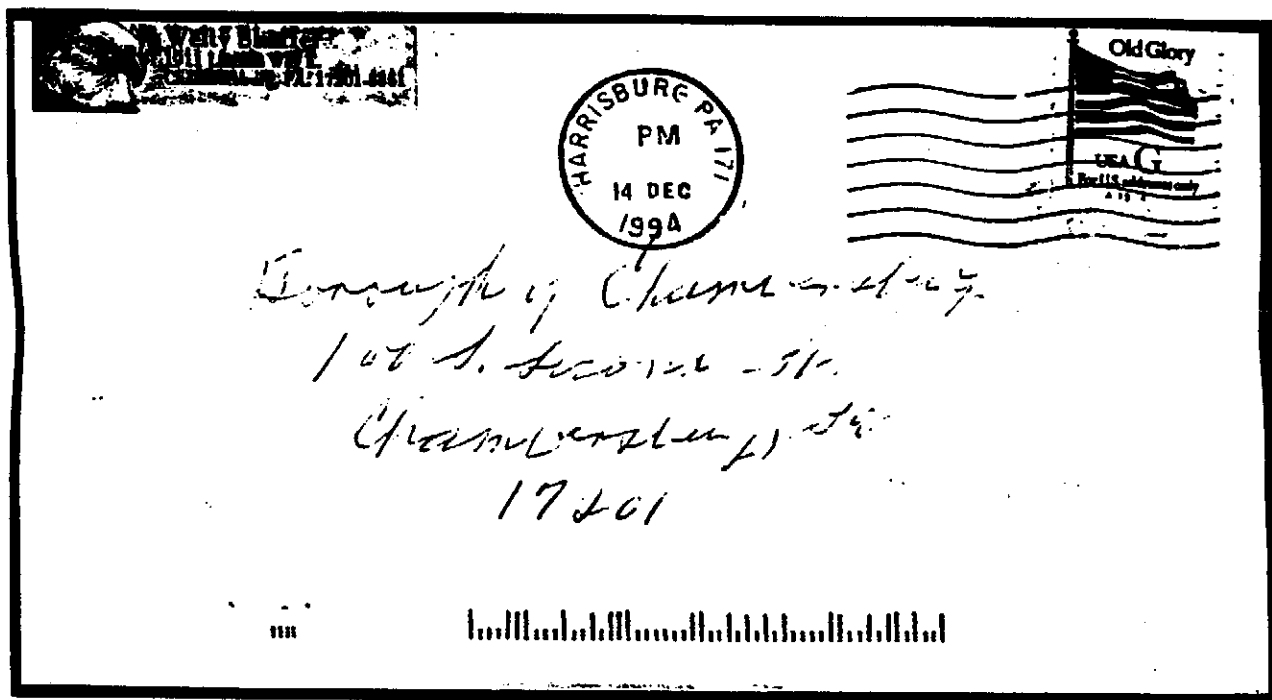 HARRISBURG PA 171
PM
14 DEC
1994
Old Glory
USA G
For U.S. addresses only
Borough of Chambersburg
S. Second St.
Chambersburg, Pa
17201